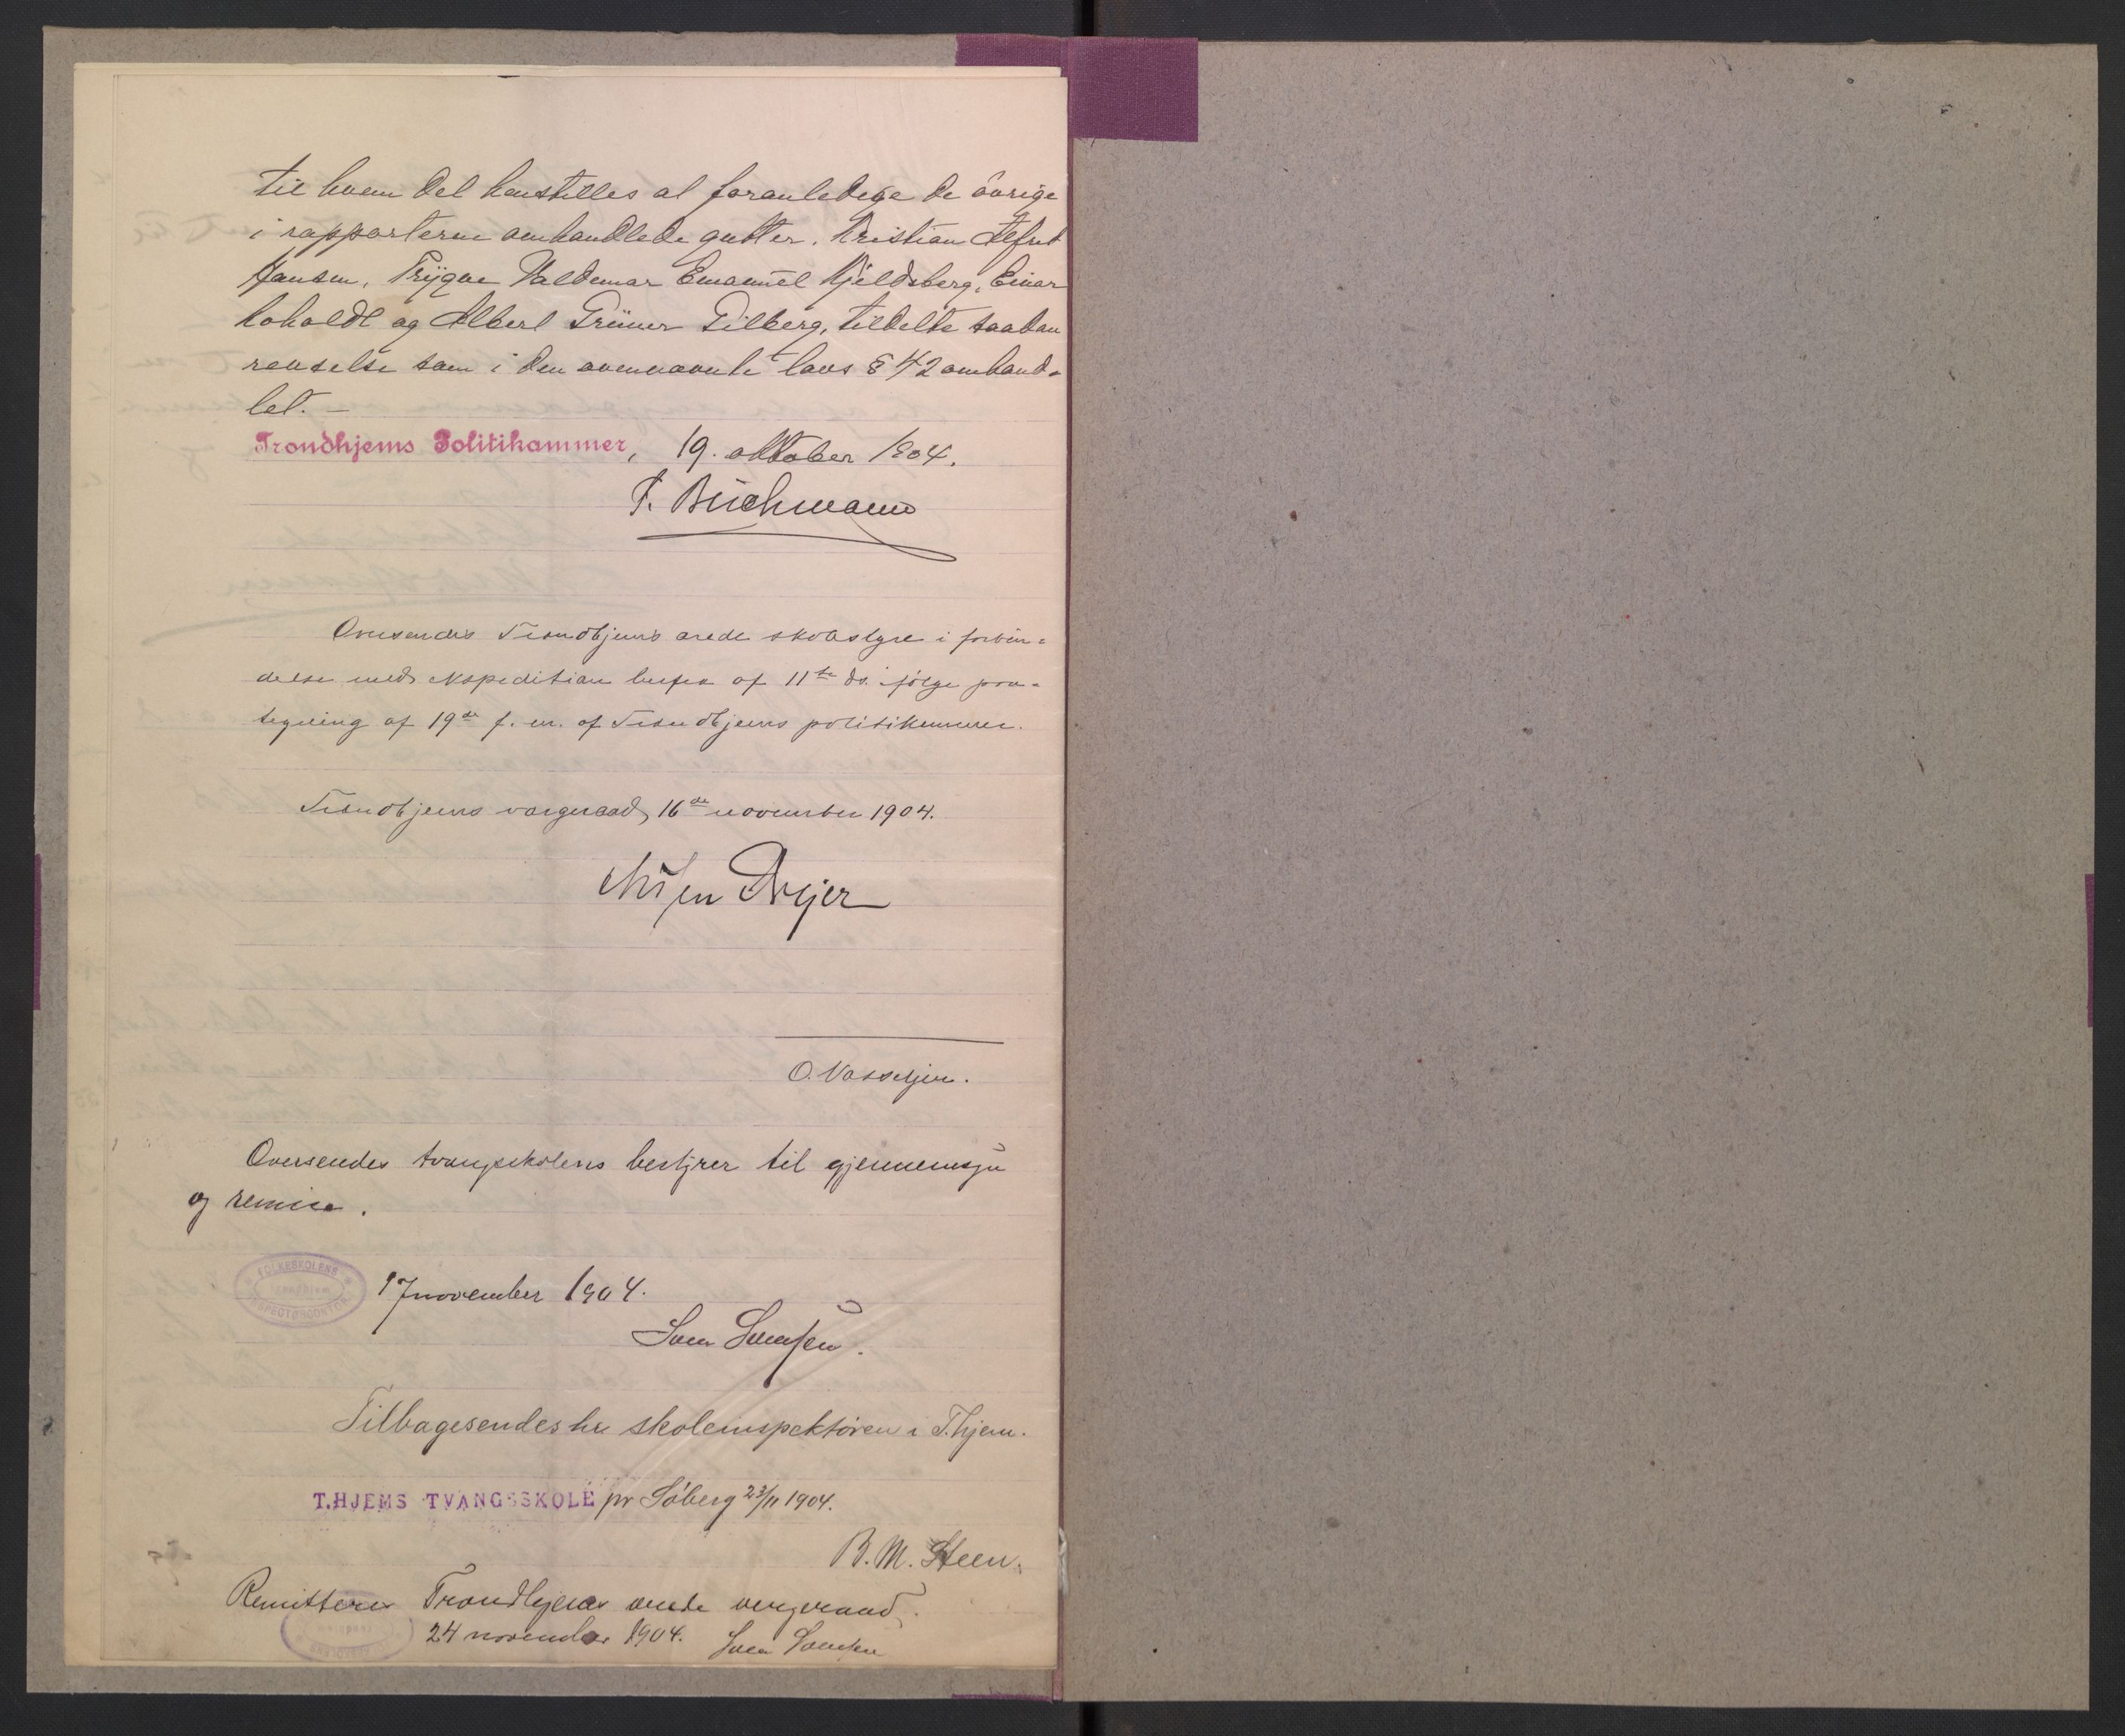 til hvem det henstilles at foranledige de övrige
i rapporterne omhandlede gutter, Kristian Alfred
Jansen, Trygve Valdemar Emanuel Kjeldsberg, Einar
Loholdt og Albert Grüner Gilberg, tildelte saadan
revselse som i den ovennævnte lovs § 42 omhand-
let. –
Trondhjems Politikammer, 19. oktober 1904.
T. Buchmann
Oversendes Trondhjems ærede skolestyre i forbin-
delse med ekspedition herfra af 11te ds. ifølge paa-
tegning af 19de f. m. af Trondhjems politikammer.
Trondhjems vergeraad, 16de november 1904.
Dreyer
O. Vasseljen.
Oversendes tvangsskolens bestyrer til gjennemsyn
og remisse.
FOLKESKOLENS INSPECTØRCONTOR
17 november 1904.
Sven Svensen.
Tilbagesendes hr skoleinspektøren i T.hjem.
T.HJEMS TVANGSSKOLE pr Søberg 23/11 1904.
B. M. Steen.
Remitteres Trondhjems ærede vergeraad.
24 november 1904. Sven Svensen